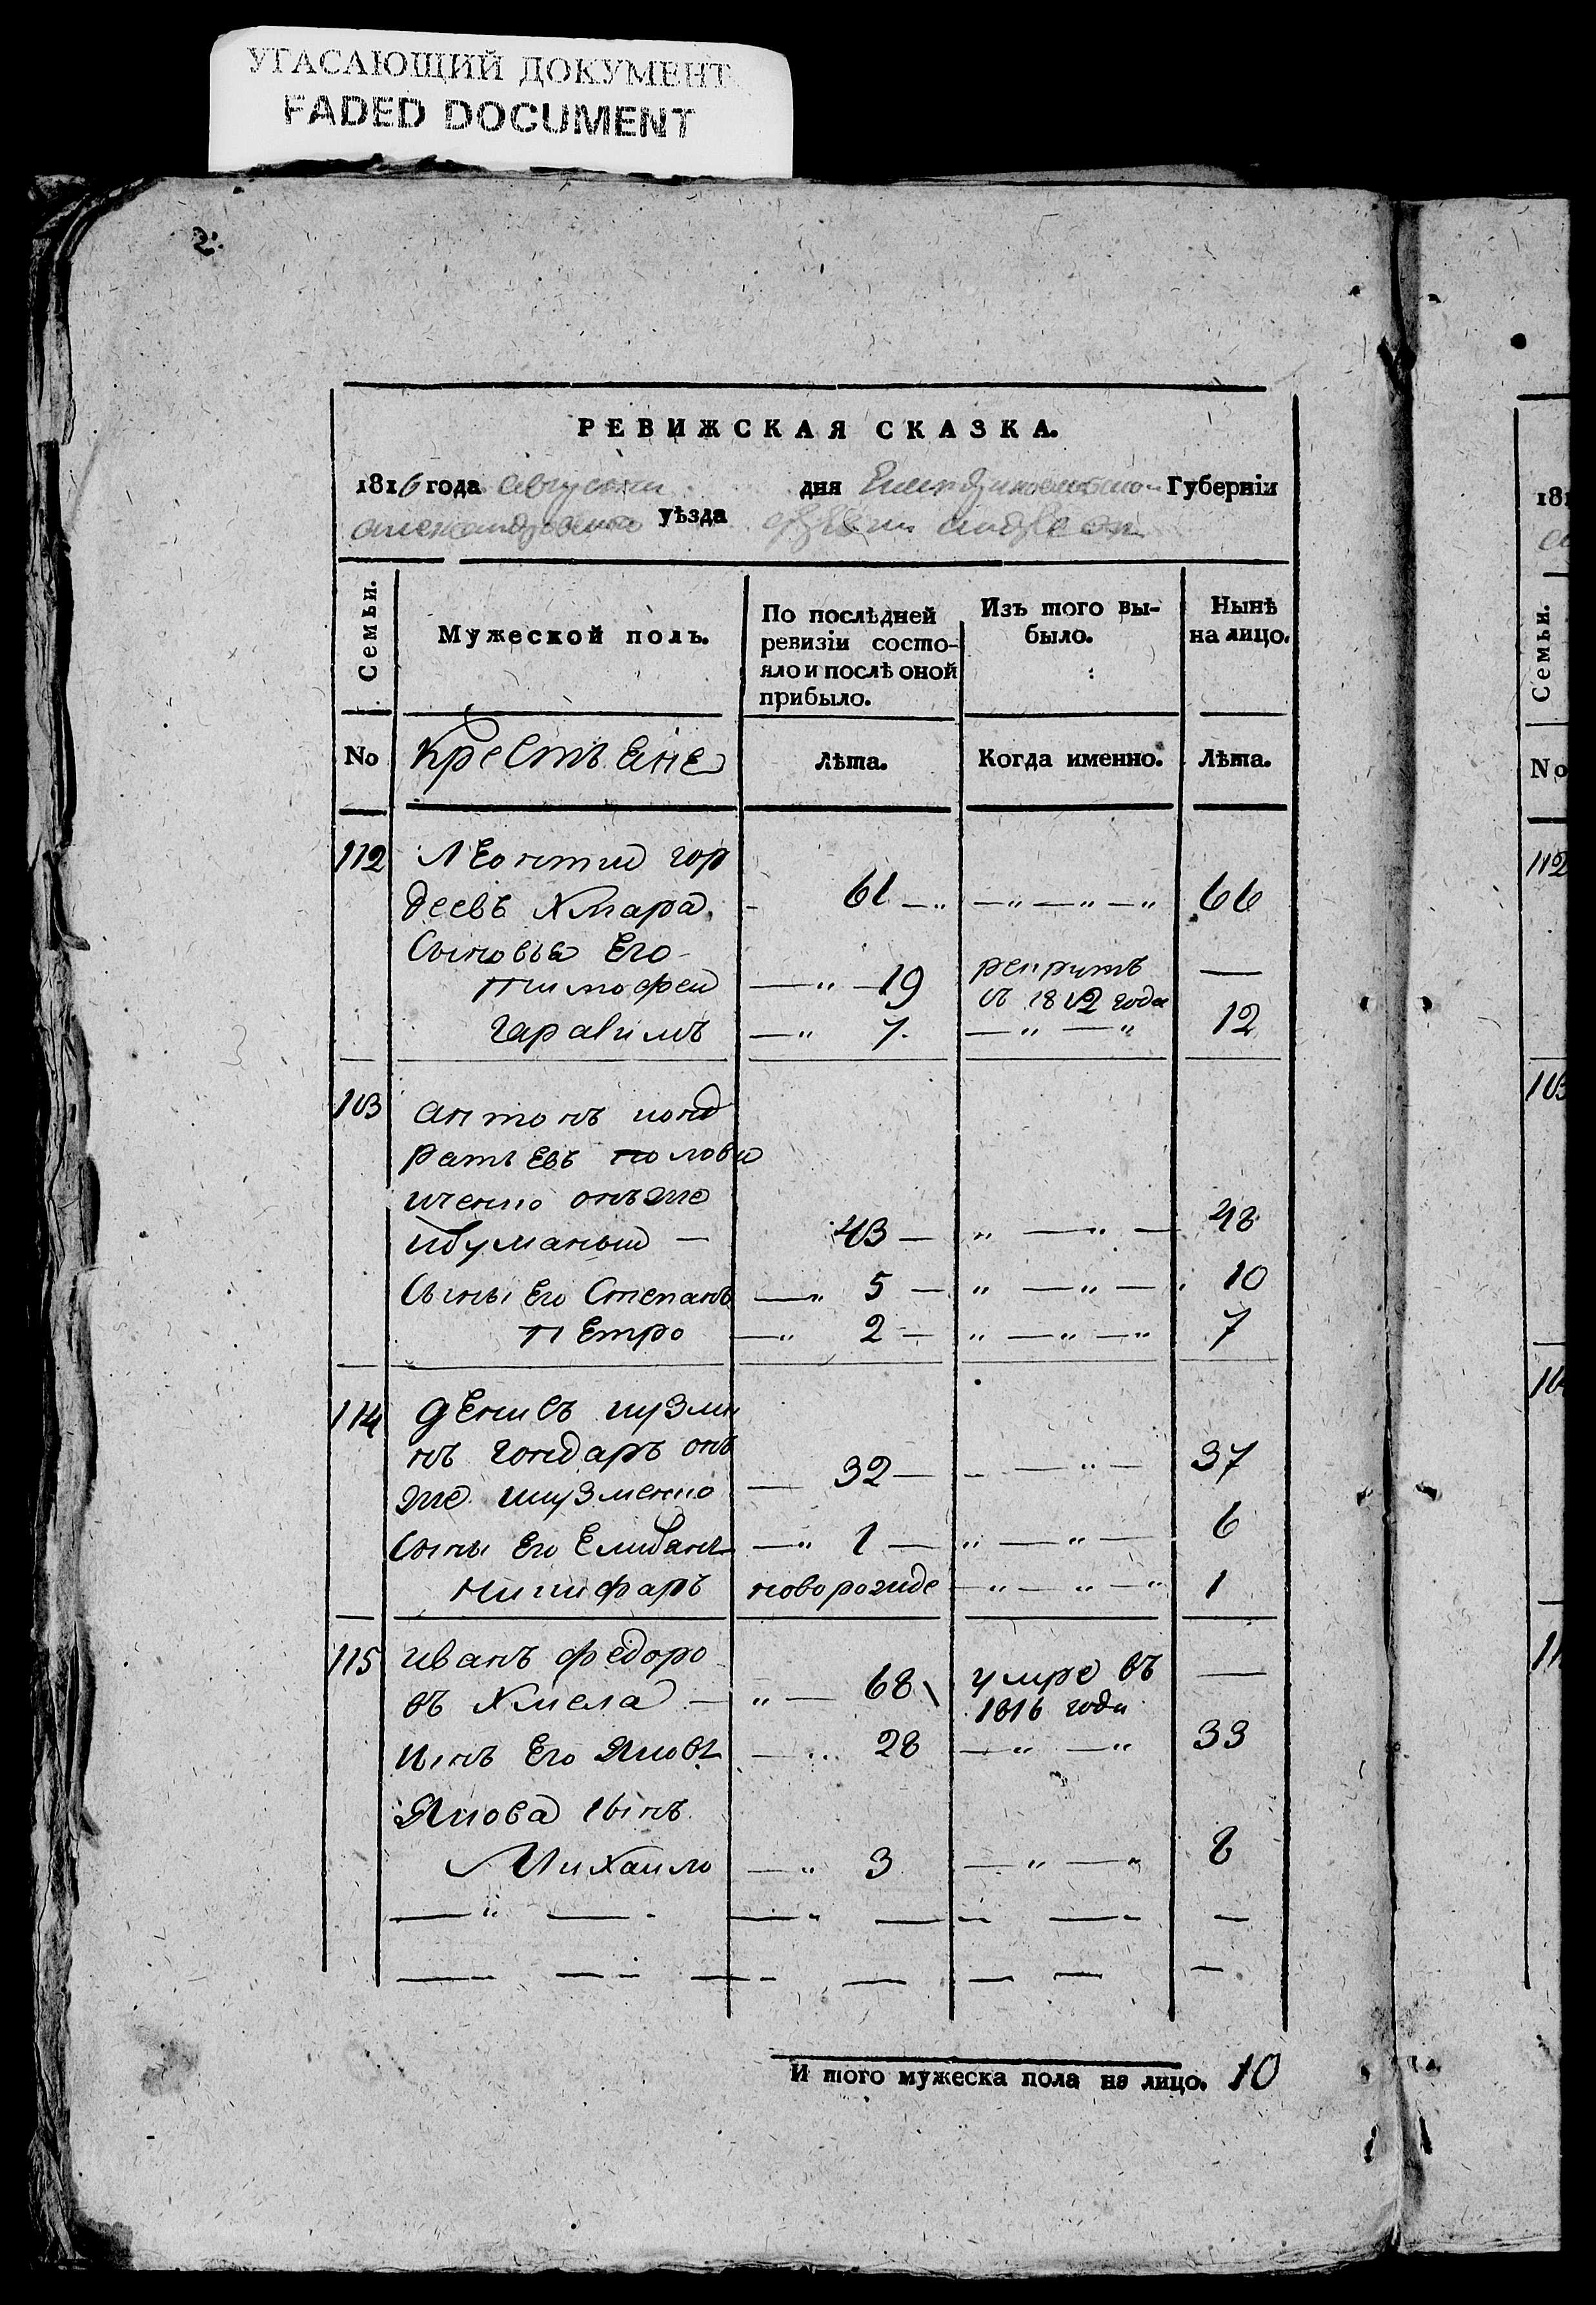 УГАСАЮЩИЙ ДОКУМЕНТ
FADED DOCUMENT
2.
РЕВИЖСКАЯ СКАЗКА.
1816 года августа дня Екатеринославской Губернiи
александровска уѣзда
Семьи.
Мужеской полъ.
По послѣдней ревизiи состо-
яло и послѣ оной
прибыло.
Изъ того вы-
было.
Нынѣ
на лицо.
No Крестъяне Лѣта. Когда именно. Лѣта.
112 Леонтии гор
деевъ Хмара 61 66
Сыновъя Его
тимофеи 19 рекрутъ —
въ 1812 года
гарасимъ 7. 12
113 антонъ конд
ратьевъ полови
ченко онъже
43 48
Сыны Его Степанъ 5 10
петро 2 7
114 денисъ кузми
нъ гондаръ онъ
же кузменко 32 37
Сыны Его Еливанъ 1 6
никифаръ новорожде 1
115 иванъ федоро
въ Хмела 68 умре въ —
1816 года
сынъ Его Яковъ 28 33
Якова сынъ
Михаило 3 8
И того мужеска пола на лицо. 10
181
Семьи.
No
112
113